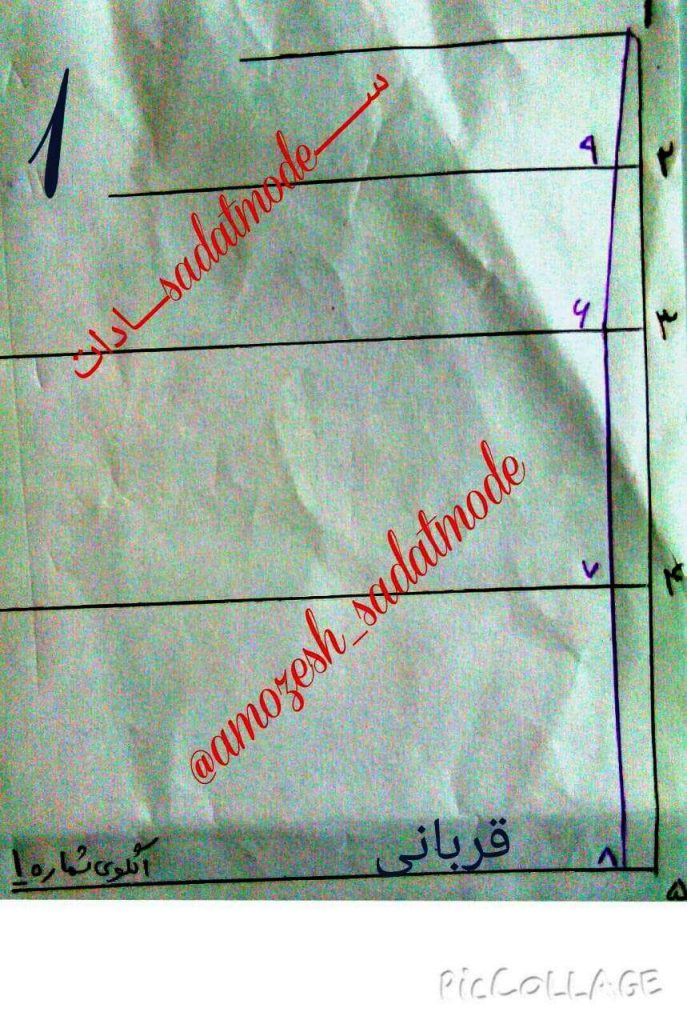 ۱
۱
۲
۹
ســـــــادات
sadatmode
۳
۶
۴
۷
@amozesh_sadatmode
قربانی
۸
۵
الگوی شماره ۱
PicCOLLAGE